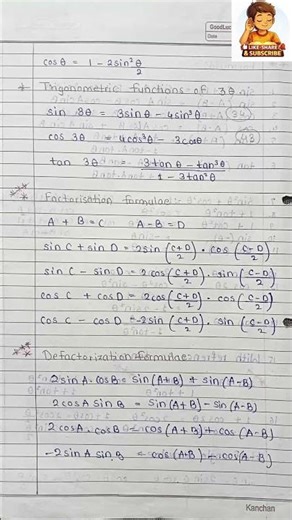 GoodLuck
Date
LIKE, SHARE
& SUBSCRIBE
cosθ = 1 - 2sin²θ/2
* Trigonometric functions of 3θ
sin 3θ = 3sinθ - 4sin³θ (34)
cos 3θ = 4cos³θ - 3cosθ (43)
tan 3θ = 3tanθ - tan³θ / 1 - 3tan²θ
* Factorisation formulae :-
A + B = C A - B = D
sin C + sin D = 2sin (C+D/2) . cos (C-D/2)
sin C - sin D = 2cos (C+D/2) . sin (C-D/2)
cos C + cos D = 2cos (C+D/2) . cos (C-D/2)
cos C - cos D = -2sin (C+D/2) . sin (C-D/2)
* Defactorization formulae
2sin A . cos B = sin (A+B) + sin (A-B)
2cos A sin B = sin (A+B) - sin (A-B)
2cos A . cos B = cos (A+B) + cos (A-B)
-2sin A sin B = cos (A+B) - cos (A-B)
Kanchan